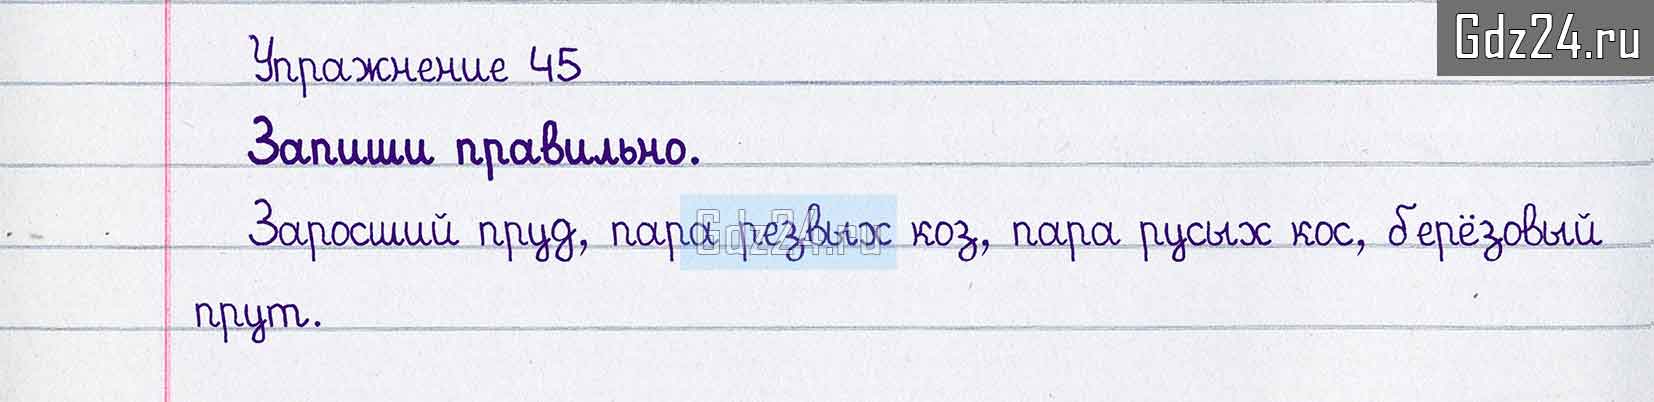 Gdz24.ru
Упражнение 45
Запиши правильно.
Заросший пруд, пара резвых коз, пара русых кос, берёзовый
Gdz24.ru
прут.